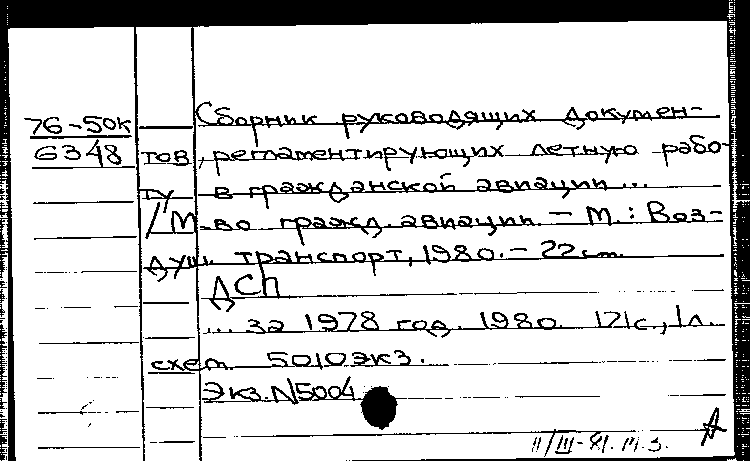 76-50к
6348
Сборник руководящих докумен-
тов, регламентирующих летную рабо-
ту в гражданской авиации ...
/М-во гражд. авиации. - М.: Воз-
душ. транспорт, 1980. - 22см.
ДСП
... за 1978 год. 1980. 121с., 1л.
схем. 5010экз.
Экз. N5004